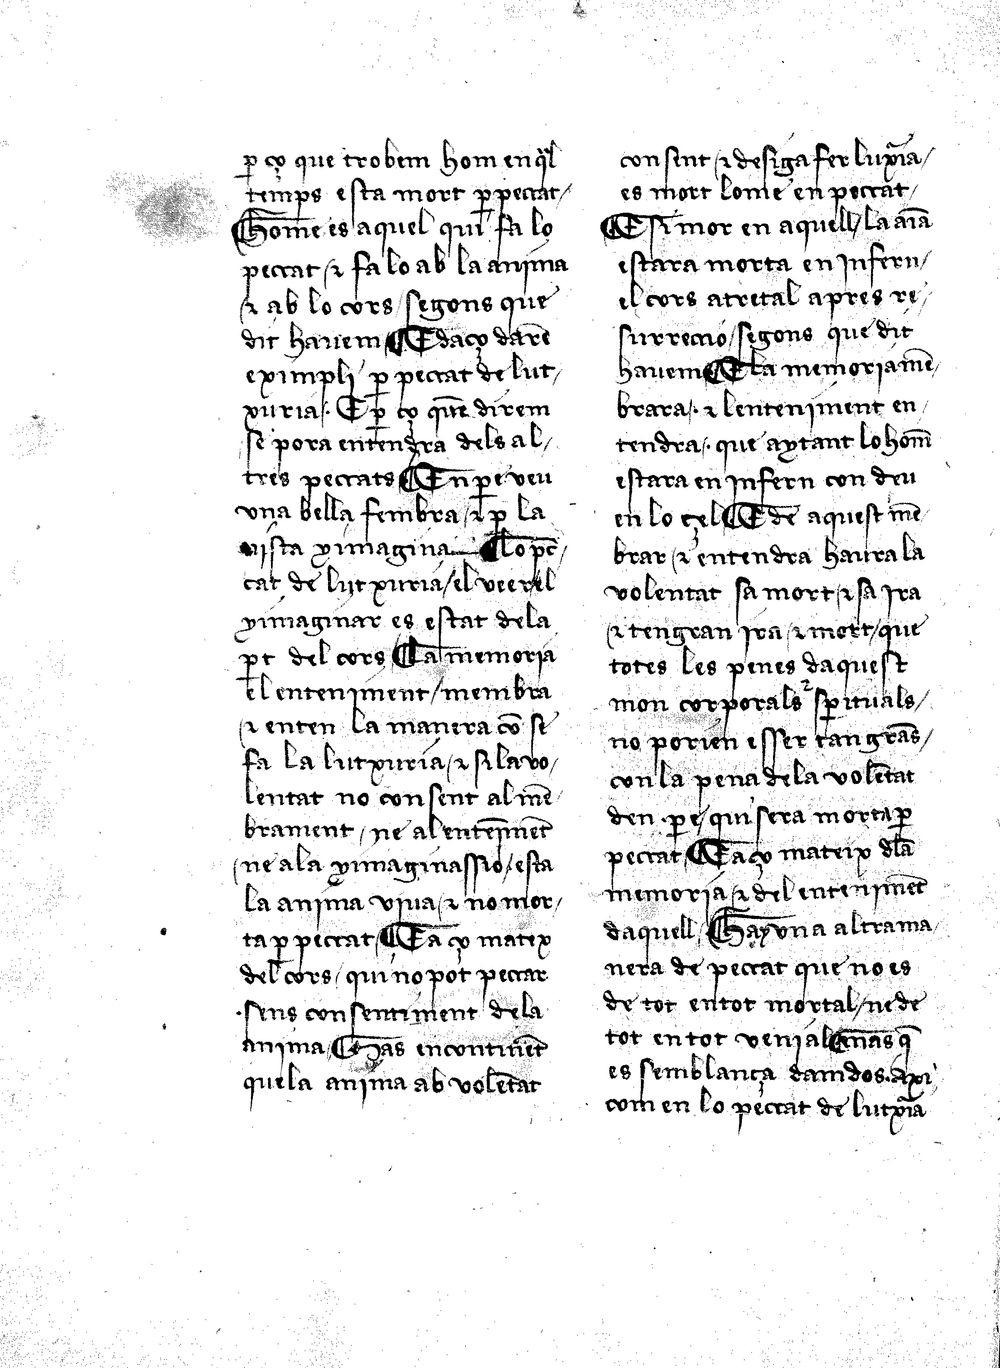 ꝑ ço que trobem hom en q̃l
temps esta mort ꝑ peccat /
Home es aquel qui fa lo
peccat / ⁊ fa lo ab la anima
⁊ ab lo cors / segons que
dit hauem E daço darẽ
eximpli ꝑ peccat de lut /
xuria /. E ꝑ ço quẽ direm
se pora entendra dels al /
tres peccats En pere veu
vna bella fembra / ⁊ ꝑ la
vista ymagina lo pec̃ /
cat de lutxuria / el veer el
ymaginar es estat de la
ꝑt del cors La memoria
el enteniment / membra
⁊ enten la manera cõ se
fa la lutxuria / ⁊ si la vo /
lentat no consent al mẽ /
brament / ne al entenimẽt
/ ne a la ymaginassio / esta
la anima viua / ⁊ no mor /
ta ꝑ peccat E aço matex
del cors / qui no pot peccar
sens consentiment de la
anima / Mas encontinẽt
que la anima ab volẽtat
consent / ⁊ desiga fer luxr̃ia /
es mort lome en peccat /
E si mor en aquell / la aĩa
estara morta en infern /
el cors atretal apres re /
surreccio / segons que dit
hauem E la memoria mẽ /
brara /. ⁊ lenteniment en /
tendra /. que aytant lo hom̃
estara en infern con deu
en lo cel E de aquest mẽ /
brar / ⁊ entendra haura la
volentat sa mort / ⁊ sa ira
⁊ ten gran ira / ⁊ mort / que
totes les penes daquest
mon corporals ⁊ sꝑituals /
no porien esser tan grãs /
con la pena de la volẽtat
den ꝑe / qui sera morta ꝑ
peccat / E aço mateix dla
memoria / ⁊ del entenimẽt
daquell / Hay vna altra ma /
nera de peccat que no es
de tot en tot mortal / ne de
tot en tot venial mas q̃
es semblança damdos. Axi
com en lo peccat de lutxr̃ia